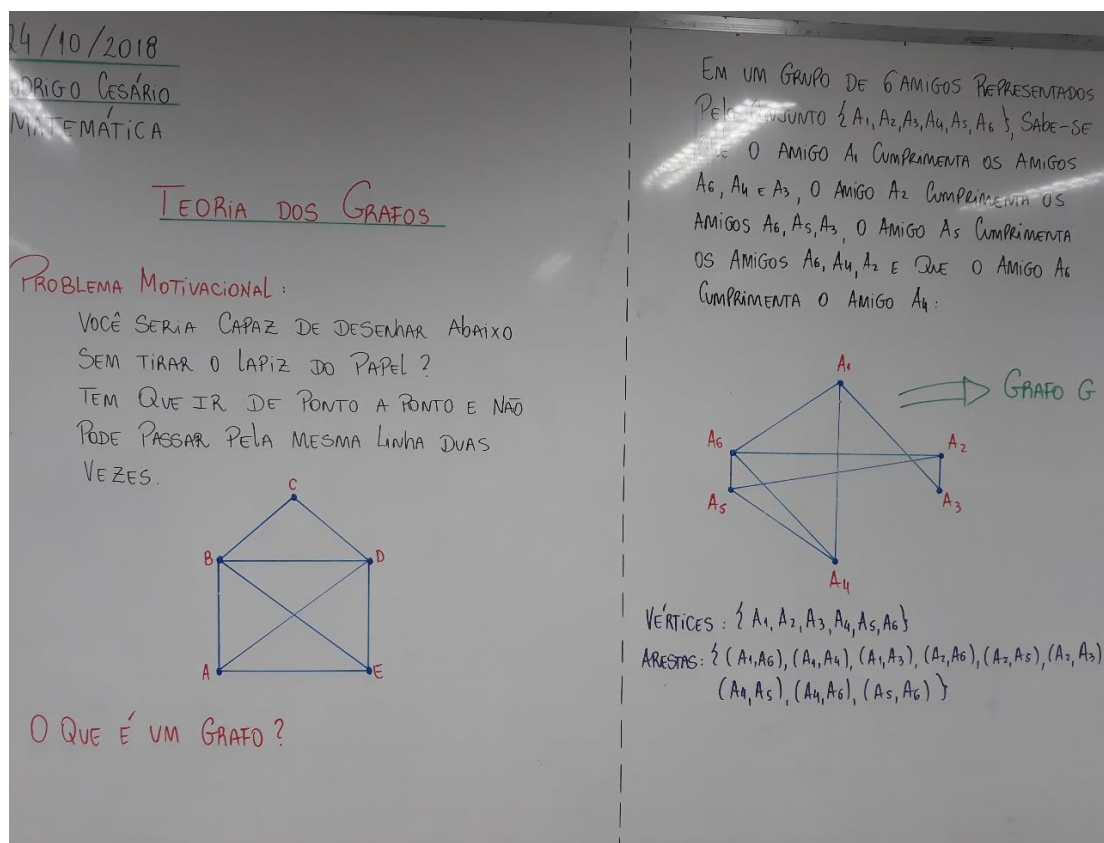 24/10/2018
RODRIGO CESÁRIO
MATEMÁTICA
TEORIA DOS GRAFOS
PROBLEMA MOTIVACIONAL:
VOCÊ SERIA CAPAZ DE DESENHAR ABAIXO
SEM TIRAR O LAPIZ DO PAPEL?
TEM QUE IR DE PONTO A PONTO E NÃO
PODE PASSAR PELA MESMA LINHA DUAS
VEZES.
C
B
D
A
E
O QUE É UM GRAFO?
EM UM GRUPO DE 6 AMIGOS REPRESENTADOS
PELO CONJUNTO {A1, A2, A3, A4, A5, A6}, SABE-SE
QUE O AMIGO A1 CUMPRIMENTA OS AMIGOS
A6, A4 E A3, O AMIGO A2 CUMPRIMENTA OS
AMIGOS A6, A5, A3, O AMIGO A5 CUMPRIMENTA
OS AMIGOS A6, A4, A2 E QUE O AMIGO A6
CUMPRIMENTA O AMIGO A4:
A1
GRAFO G
A6
A2
A5
A3
A4
VÉRTICES: {A1, A2, A3, A4, A5, A6}
ARESTAS: {(A1,A6), (A1,A4), (A1,A3), (A2,A6), (A2,A5), (A2,A3)
(A4,A5), (A4,A6), (A5,A6)}